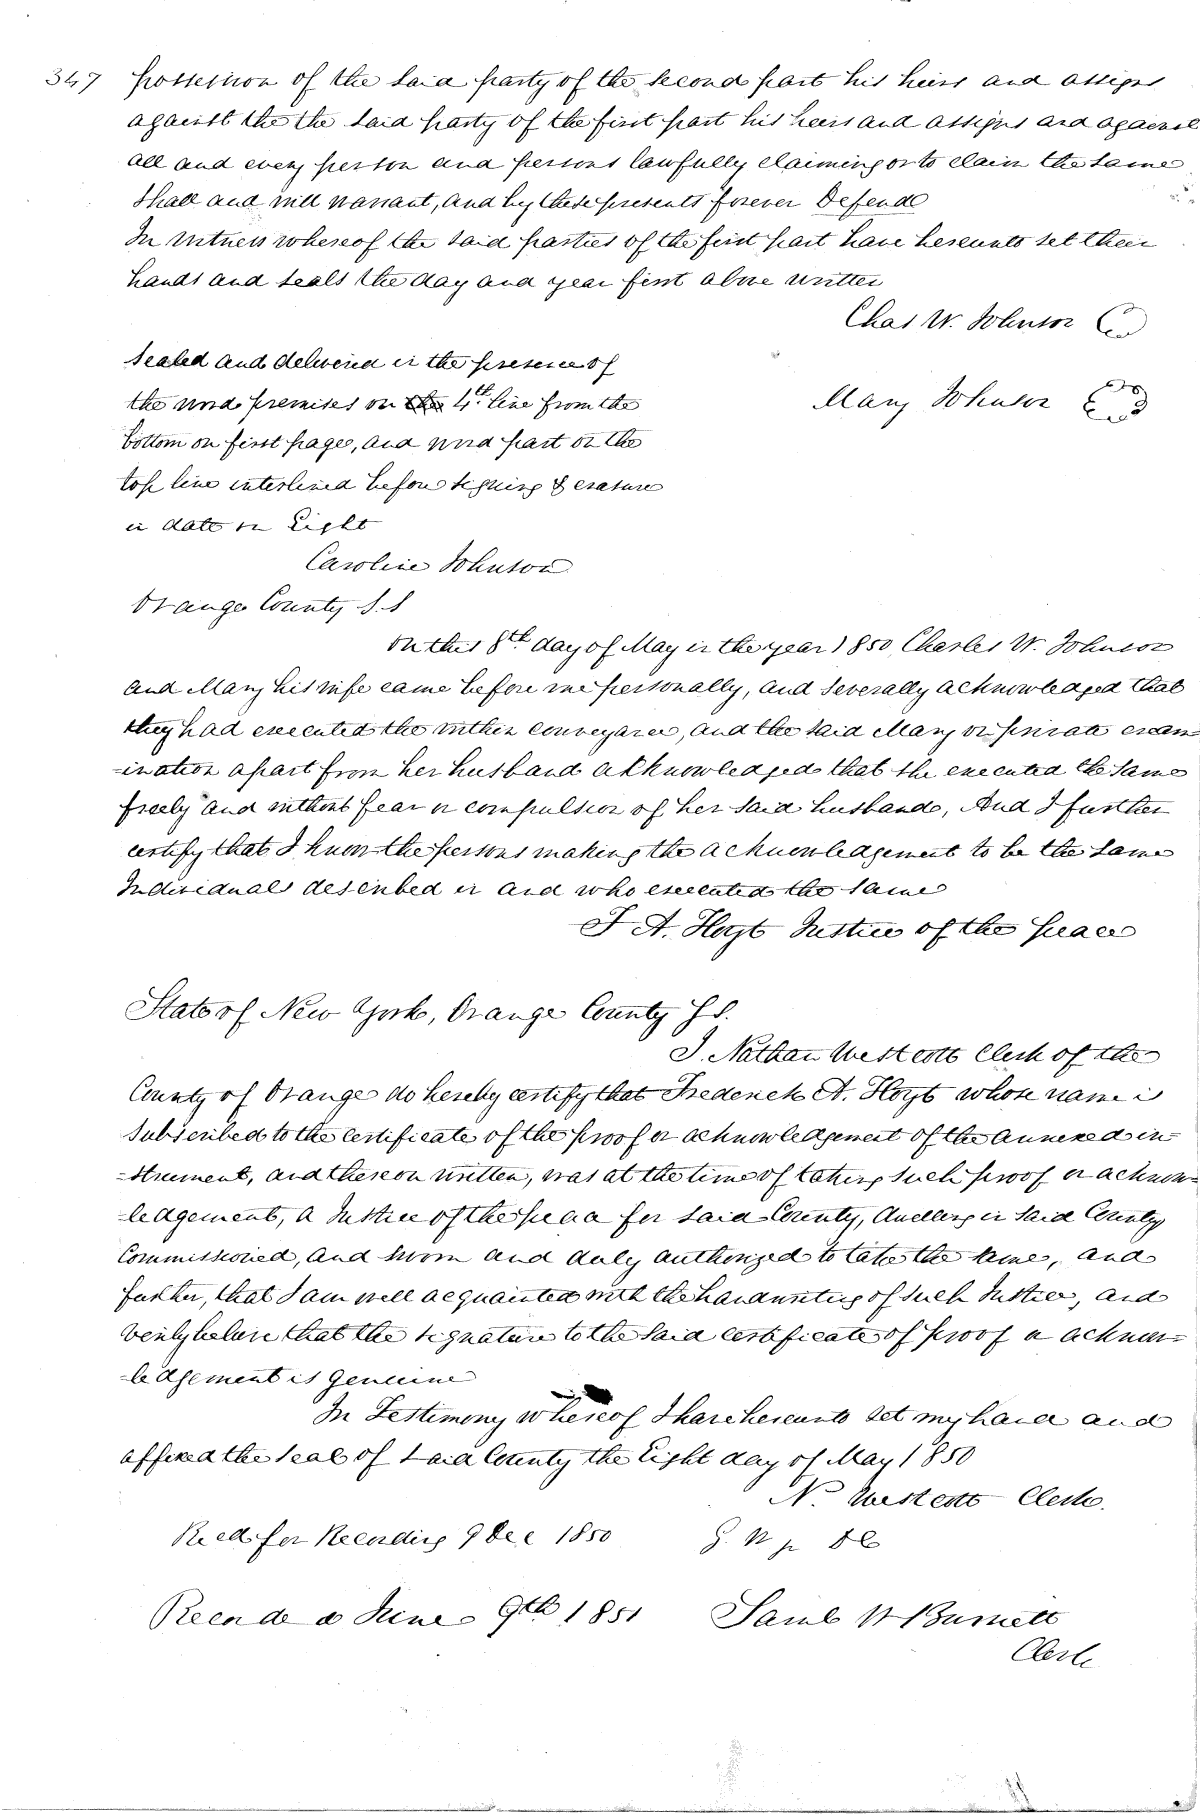 347 possession of the said party of the second part his heirs and assigns
against the the said party of the first part his heirs and assigns and against
all and every person and persons lawfully claiming or to claim the same
shall and will warrant, and by these presents forever Defend
In Witness whereof the said parties of the first part have hereunto set their
hands and seals the day and year first above written
Chas W. Johnson
Sealed and delivered in the presence of
the word premises on the 4th line from the
Mary Johnson
bottom on first page, and word part on the
top line interlined before signing & erasure
in date on Eight
Caroline Johnson
Orange County S.S
On this 8th day of May in the year 1850 Charles W. Johnson
and Mary his wife came before me personally, and severally acknowledged that
they had executed the within conveyance, and the said Mary on private exam
-ination apart from her husband acknowledged that she executed the same
freely and without fear or compulsion of her said husband, And I further
certify that I know the persons making the acknowledgement to be the same
Individuals described in and who executed the same
F A. Hoyt Justice of the peace
State of New York, Orange County S.S.
I. Nathan Westcott Clerk of the
County of Orange do hereby certify that Frederick A. Hoyt whose name is
subscribed to the certificate of the proof or acknowledgement of the annexed in=
-strument, and thereon written, was at the time of taking such proof or acknow=
-ledgement, a Justice of the peace for said County, dwelling in said County
Commissioned, and sworn and duly authorized to take the same, and
further, that I am well acquainted with the handwriting of such Justice, and
verily believe that the signature to the said certificate of proof or acknow=
-ledgement is genuine
In Testimony whereof I have hereunto set my hand and
affixed the seal of said County the Eight day of May 1850
N. Westcott Clerk.
Recd for Recording 9 Dec 1850
Recorded June 9th 1851 Saml W Burnett
Clerk